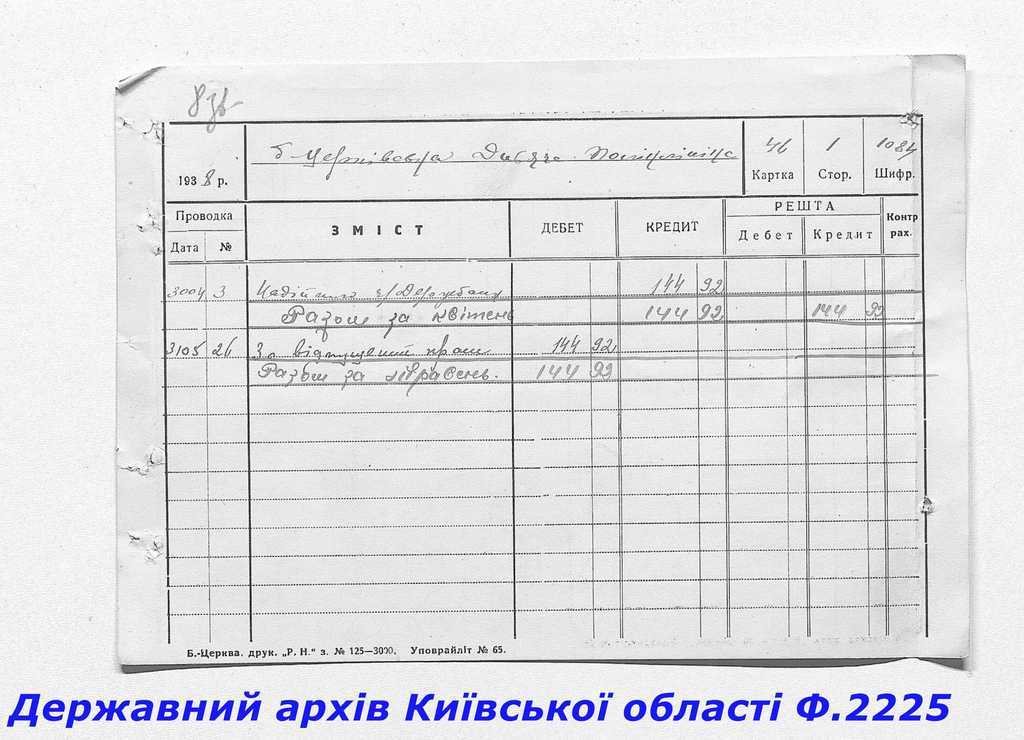 193 8 р.
Б-Церківська Дитяча Поліклініка
46 1 1084
Картка Стор. Шифр.
Проводка ЗМІСТ ДЕБЕТ КРЕДИТ РЕШТА Контр рах.
Дата № Дебет Кредит
3004 3 Надійшло з Держбанку 144 92
Разом за квітень 144 92 144 92
3105 26 За відпущений кров 144 92
Разом за 144 92
Б.-Церква. друк. „Р. Н." з. № 125—3000. Уповрайліт № 65.
Державний архів Київської області Ф.2225